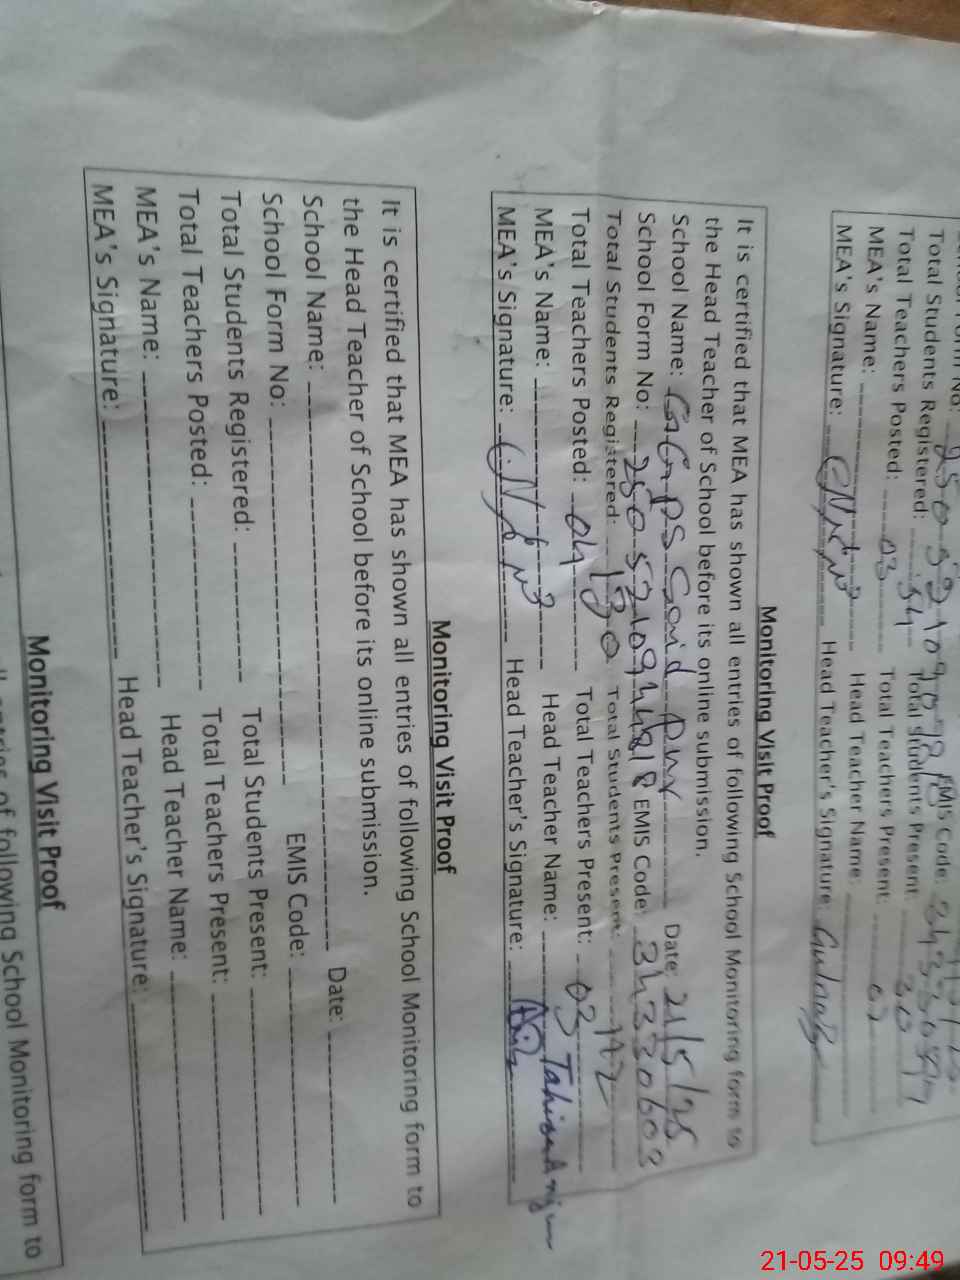 Total Students Registered: 54 Total Students Present: 30
Total Teachers Posted: 03 Total Teachers Present: 02
MEA's Name: Head Teacher Name:
MEA's Signature: Head Teacher's Signature:
Monitoring Visit Proof
It is certified that MEA has shown all entries of following School Monitoring form to
the Head Teacher of School before its online submission.
School Name: GGPS Date: 21/5/25
School Form No: EMIS Code:
Total Students Registered: Total Students Present:
Total Teachers Posted: 04 Total Teachers Present: 03
MEA's Name: Head Teacher Name: Tahira Anjum
MEA's Signature: Head Teacher's Signature:
Monitoring Visit Proof
It is certified that MEA has shown all entries of following School Monitoring form to
the Head Teacher of School before its online submission.
School Name: Date:
School Form No: EMIS Code:
Total Students Registered: Total Students Present:
Total Teachers Posted: Total Teachers Present:
MEA's Name: Head Teacher Name:
MEA's Signature: Head Teacher's Signature:
Monitoring Visit Proof
of following School Monitoring form to
21-05-25 09:49